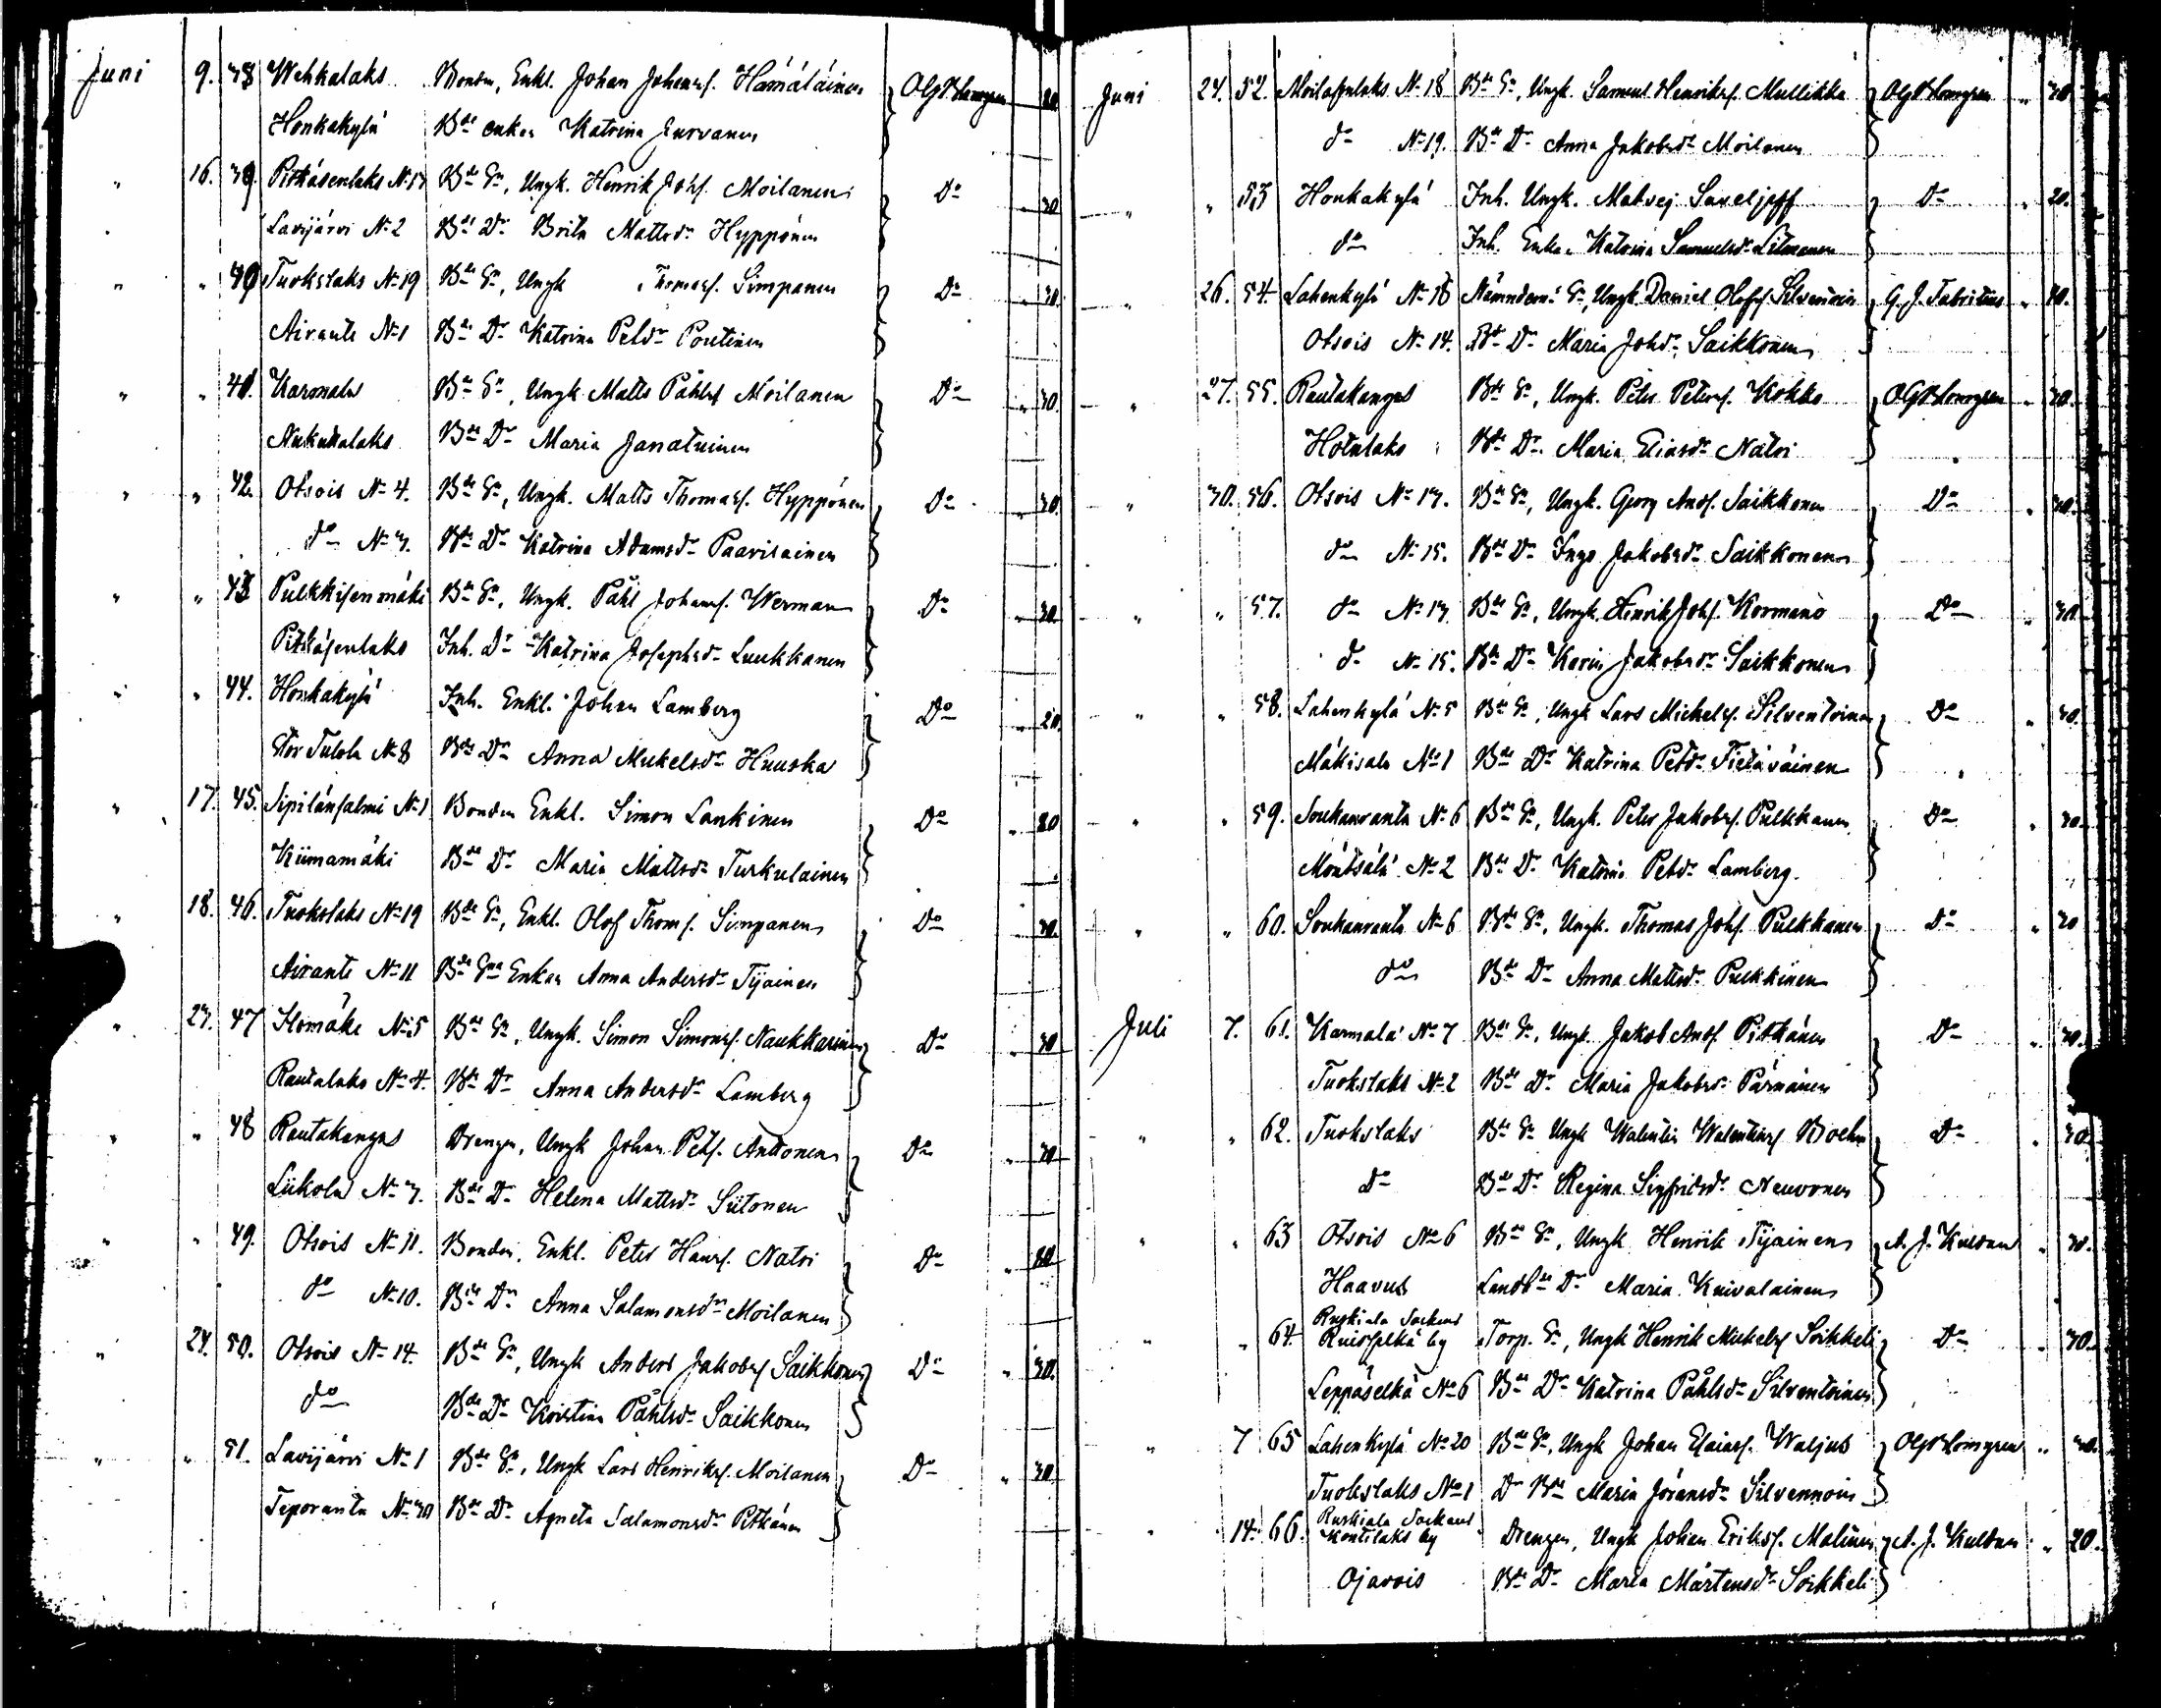 Juni 9. 38 Wehkalaks Bonden, Enkl. Johan Johansf. Hämäläinen } OlgBlomgren 20
Honkakylä Bde enkan Katrina Hurvanen
" 16. 39 Pitkäsenlaks No 13 Bde Sn, Ungk. Henrik Johf. Moilanen } Do " 30
Lavijärvi No 2 Bde Dr Brita Mattsdr Hyppönen
" " 40 Tuokslaks No 19 Bde Sn, Ungk Thomasf. Simpanen } Do " 30
Airante No 1 Bde Dr Katrina Petdr Poutinen
" " 41. Karmala Bde Sn, Ungk Matts Påhlsf Moilanen } Do " 30.
Kukukalaks Bde Dr Maria Janatuinen
" " 42. Otsois No 4. Bde Sn, Ungk. Matts Thomasf. Hyppönen } Do " 30.
do No 3. Bde Dr Katrina Adamsdr Paavilainen
" " 43 Pulkkisenmäki Bde Sn, Ungk. Påhl Johansf. Werman } Do " 30.
Pitkäsenlaks Inh. Dr Katrina Josephsdr Luukkanen
" " 44. Honkakylä Inh. Enkl. Johan Lamberg } Do " 20.
Stor Tulola No 8 Bde Dr Anna Mickelsdr Huuska
" 17. 45. Sipilänsalmi No 1 Bonden Enkl. Simon Lankinen } Do " 20
Kiimamäki Bde Dr Maria Mattsdr Turkulainen
" 18. 46. Tuokslaks No 19 Bde Sn, Enkl. Olof Thomf. Simpanen } Do 30.
Airante No 11 Bde Sns Enkan Anna Andersdr Tijainen
" 23. 47 Ilomäki No 5 Bde Sn, Ungk. Simon Simonsf. Naukkarinen } Do " 30
Rautalaks No 4. Bde Dr Anna Andersdr Lamberg
" " 48 Rautakangas Drengen, Ungk Johan Petsf. Anttonen } Do " 20
Liikola No 3. Bde Dr Helena Mattsdr Siitonen
" " 49. Otsois No 11. Bonden, Enkl. Peter Hansf. Natri } Do " 20
do No 10. Bde Dr Anna Salamonsdr Moilanen
" 24. 50. Otsois No 14. Bde Sn, Ungk Anders Jakobsf Saikkonen } Do " 30.
do Bde Dr Kristina Påhlsdr Saikkonen
" " 51. Lavijärvi No 1 Bde Sn, Ungk Lars Henriksf. Moilanen } Do " 30.
Teporanta No 30 Bde Dr Agneta Salamonsdr Pitkänen
Juni 24. 52. Moilasenlaks No 18 Bde Sn, Ungk. Samuel Henriksf. Mullikka } OlgBlomgren " 30
do No 19. Bde Dr Anna Jakobsdr Moilanen
" " 53 Honkakylä Inh. Ungk. Matvej Saveljeff } Do " 20.
do Inh. Enka Katrina Samuelsdr Litmanen
" 26. 54. Lahenkylä No 18 Nämndem: Sn, Ungk. Daniel Olofsf. Silventoin } G. J. Fabritius " 30.
Otsois No 14. Bde Dr Maria Johdr Saikkonen
" 27. 55. Rautakangas Bde Sn, Ungk. Peter Petersf. Kokko } OlgBlomgren " 30.
Hotulaks Bde Dr Maria Eliasdr Natri
" 30. 56. Otsois No 13. Bde Sn, Ungk. Georg Andf. Saikkonen } Do " 30.
do No 15. Bde Dr Inga Jakobsdr Saikkonen
" " 57. do No 13 Bde Sn, Ungk. Henrik Johf. Kormano } Do " 30.
do No 15. Bde Dr Karin Jakobsdr Saikkonen
" " 58. Lahenkylä No 5 Bde Sn, Ungk Lars Michelsf. Silventoinen } Do " 30.
Mäkisalo No 1 Bde Dr Katrina Petdr Tietäväinen
" " 59. Soukanranta No 6 Bde Sn, Ungk. Peter Jakobsf. Pulkkanen } Do " 30.
Möntsälä No 2 Bde Dr Katrina Petdr Lamberg.
" " 60. Soukanranta No 6 Bde Sn, Ungk. Thomas Johf. Pulkkanen } Do " 30
do Bde Dr Anna Mattsdr Pulkkinen
Juli 7. 61. Karmala No 7 Bde Sn, Ungk. Jakob Andf. Pitkänen } Do " 30.
Tuokslaks No 2 Bde Dr Maria Jakobsdr Pärnänen
" " 62. Tuokslaks Bde Sn Ungk Walentin Walentinsf Boehm } Do " 30.
do Bde Dr Regina Sigfridsdr Neuvonen
" " 63 Otsois No 6 Bde Sn, Ungk Henrik Tijainen } A. J. Kuldan " 30.
Haavus Landbde Dr Maria Kuivalainen
" " 64. Ruskiala Sockens
Ruisselkä by Torp. Sn, Ungk Henrik Mickelsf Soikkeli } Do " 20.
Leppäselkä No 6 Bde Dr Katrina Påhlsdr Silventoinen
" 7 65 Lahenkylä No 20 Bde Sn, Ungk Johan Elaiasf. Waljus } OlgBlomgren " 30.
Tuokslaks No 1 Dr Bde Maria Jöransdr Silvennoin
" 14. 66. Ruskiala Sockens
Kontilaks by Drengen, Ungk Johan Eriksf. Malinen } A. J. Kuldan " 20.
Ojavois Bde Dr Maria Mårtensdr Soikkeli